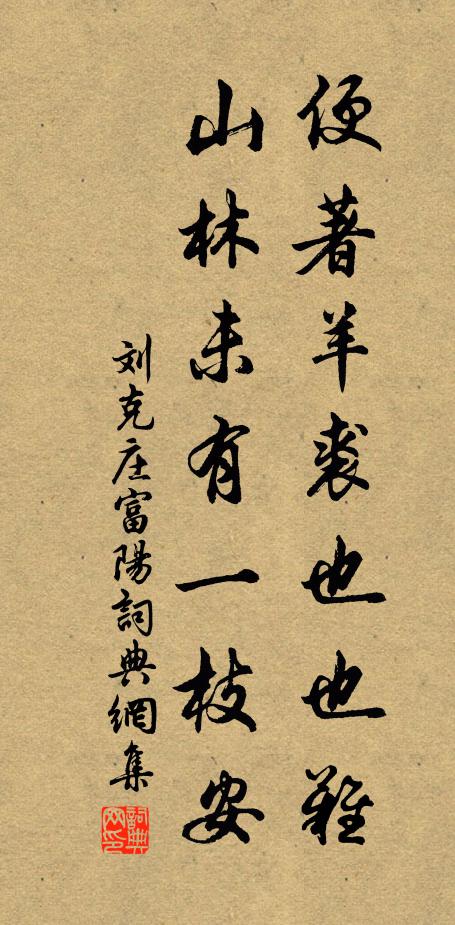 便著羊裘也也難
山林未有一枝安
刘克庄富陽詞典網集
詞典網印